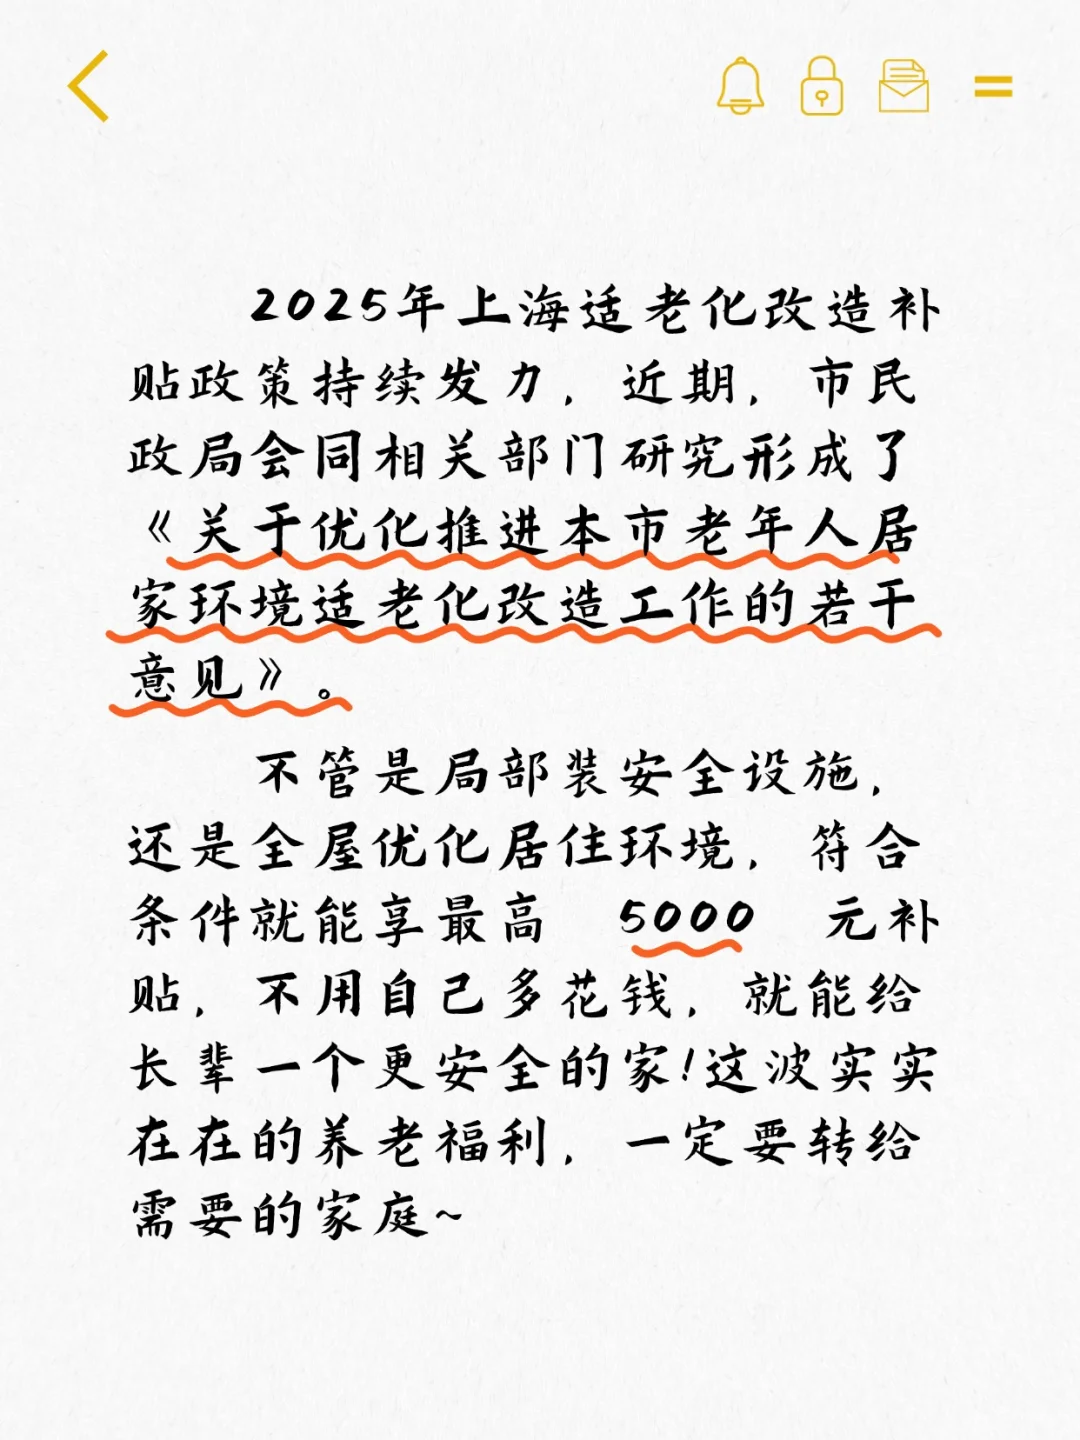 2025年上海适老化改造补
贴政策持续发力，近期，市民
政局会同相关部门研究形成了
《关于优化推进本市老年人居
家环境适老化改造工作的若干
意见》。
不管是局部装安全设施，
还是全屋优化居住环境，符合
条件就能享最高 5000 元补
贴，不用自己多花钱，就能给
长辈一个更安全的家！这波实实
在在的养老福利，一定要转给
需要的家庭~